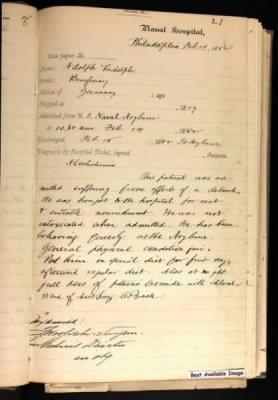 21
Naval Hospital,
Philadelphia Feb 1882
Case paper No.
Name: Adolph Rudolph
Rank: Beneficiary
Native of Germany ; age
Shipped at , 1879
Admitted from U. S. Naval Asylum
at 10.30 am Feb , 1882
Discharged Feb 15 1882 To Asylum
Diagnosis by Hospital Ticket, signed Surgeon.
Alcoholismus
This patient was ad-
mitted suffering from effects of a debauch.
He was brought to the hospital for rest
& suitable nourishment. He was not
intoxicated when admitted. He has been
behaving queerly at the Asylum.
General physical condition fair.
Put him on special diet for few days
afterward regular diet. Also at night
full dose of Potass bromide with chloral
Examined:
Medical Director
in chg
Best Available Image